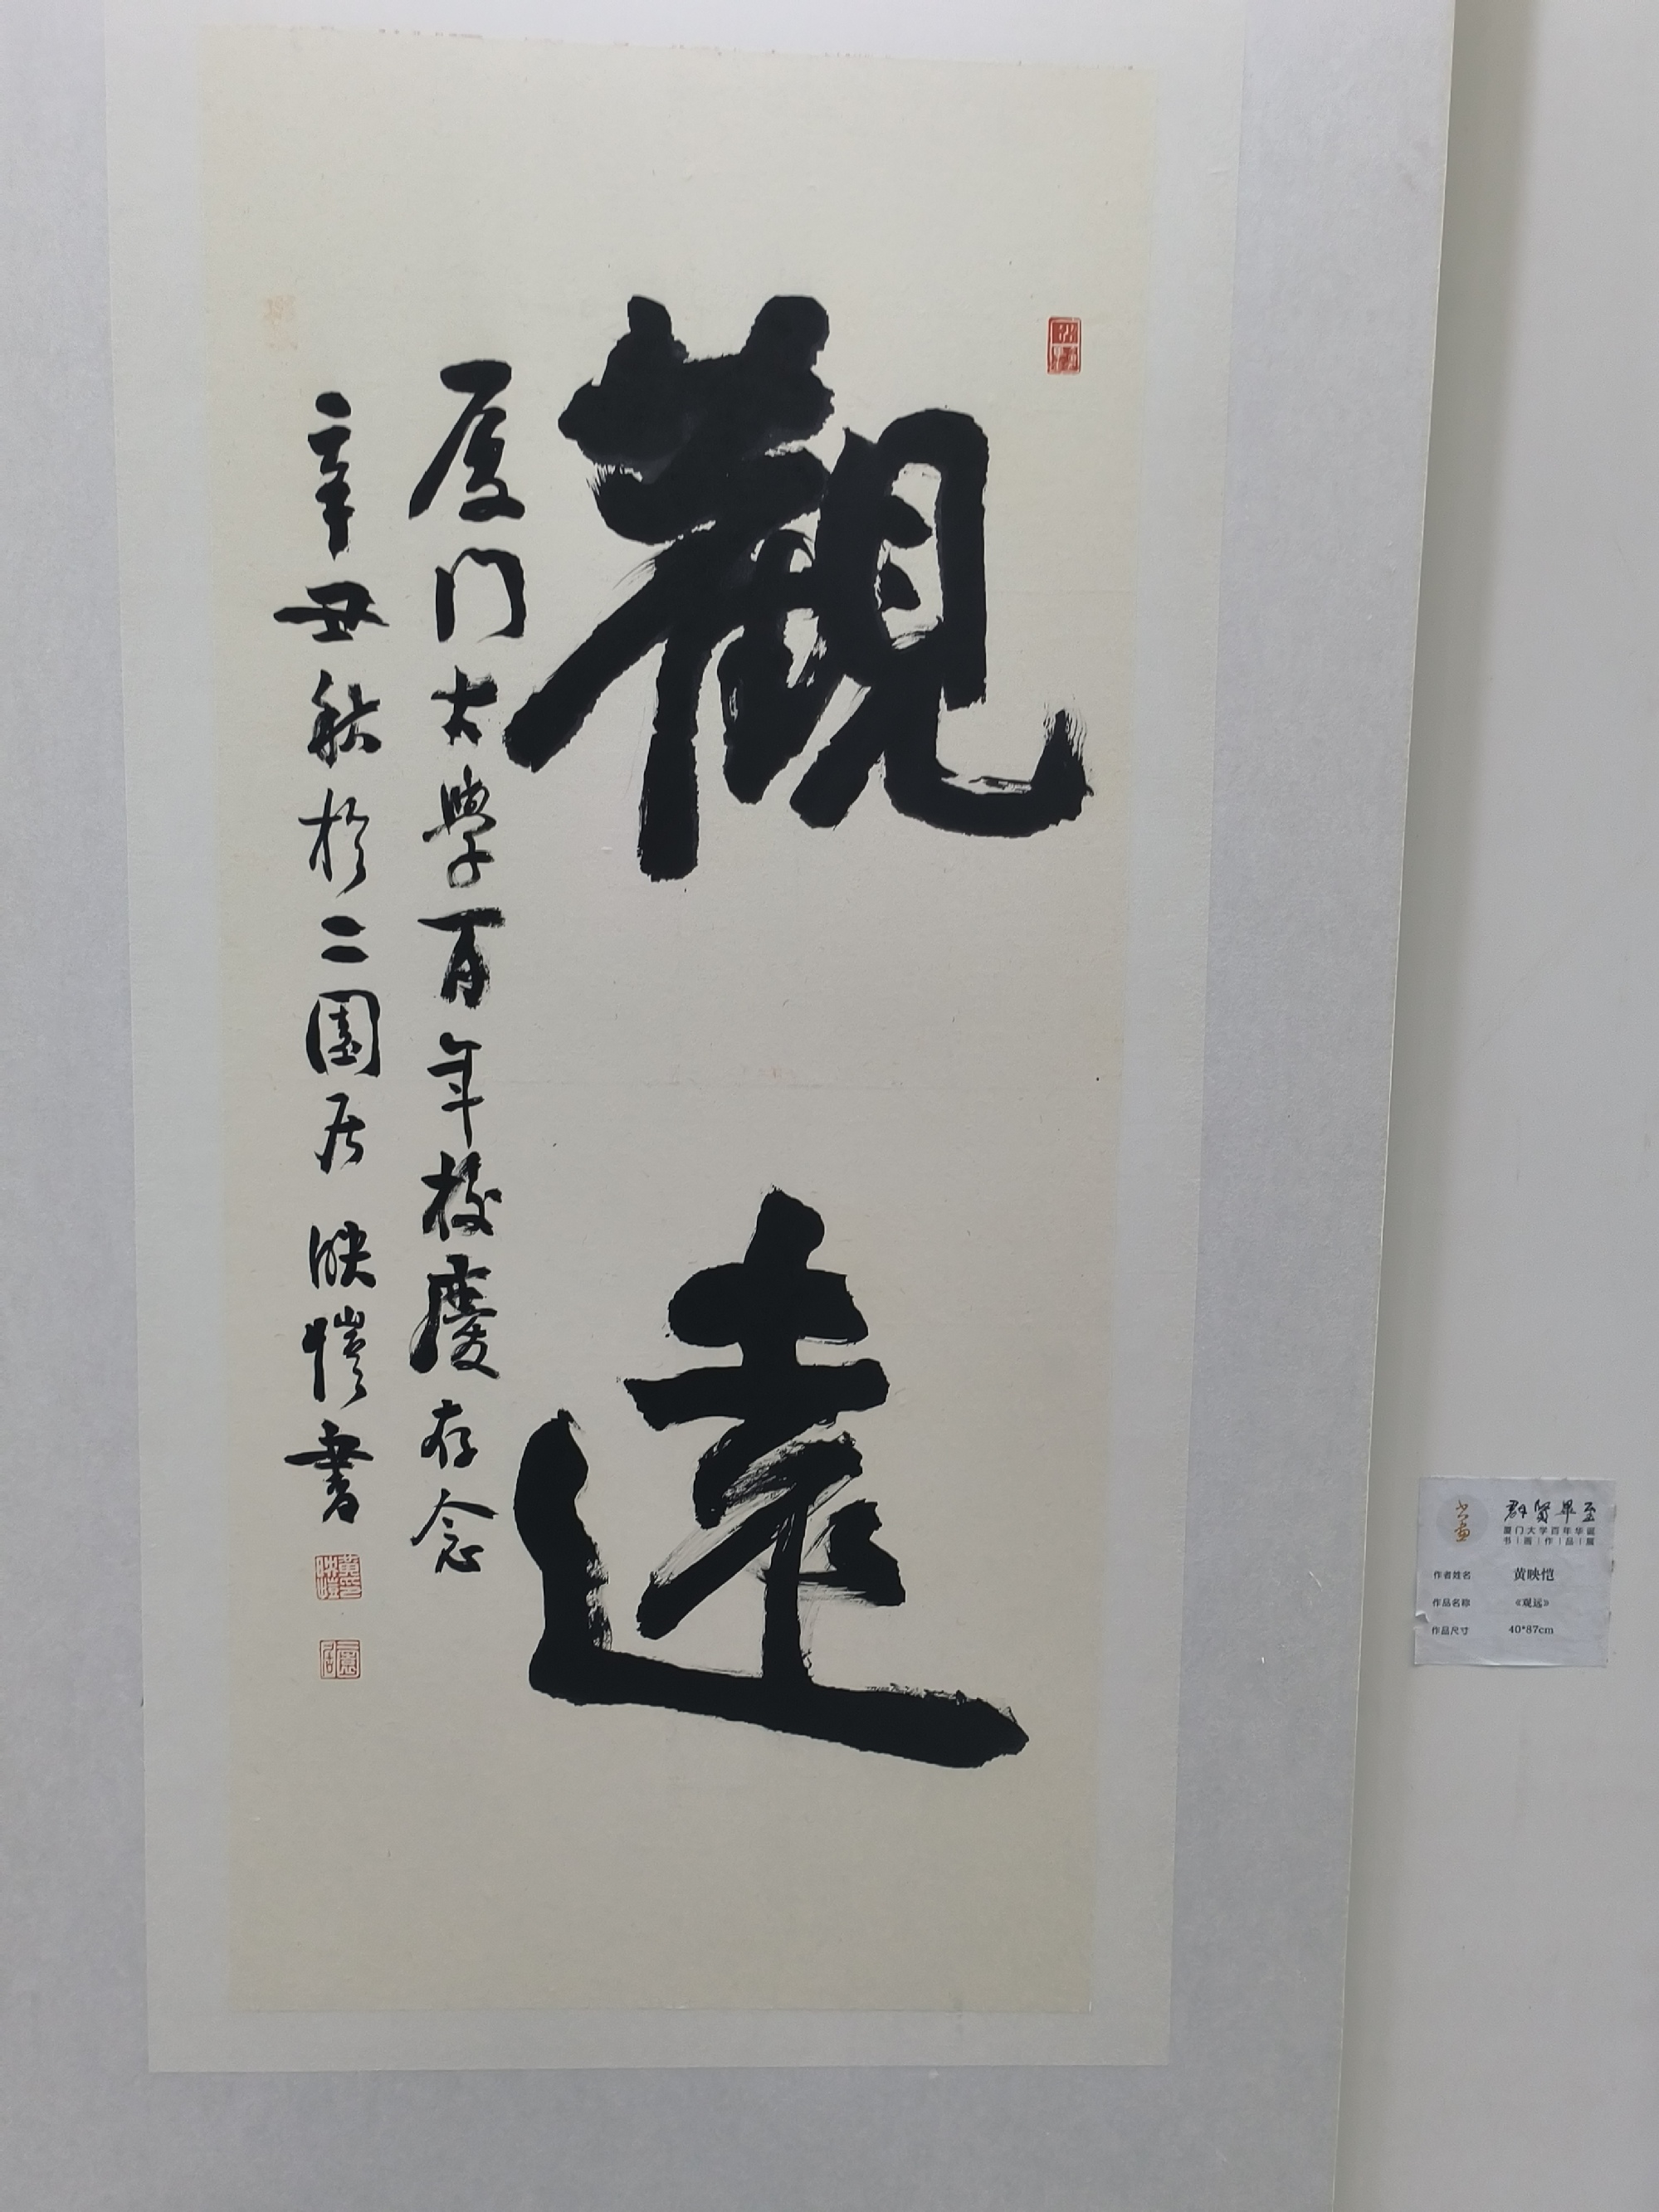 觀遠
厦门大學百年校慶存念
辛丑秋於二園居 映愷書
黄映愷
群贤毕至
厦门大学百年华诞
书|画|作|品|展
作者姓名 黄映恺
作品名称 《观远》
作品尺寸 40*87cm